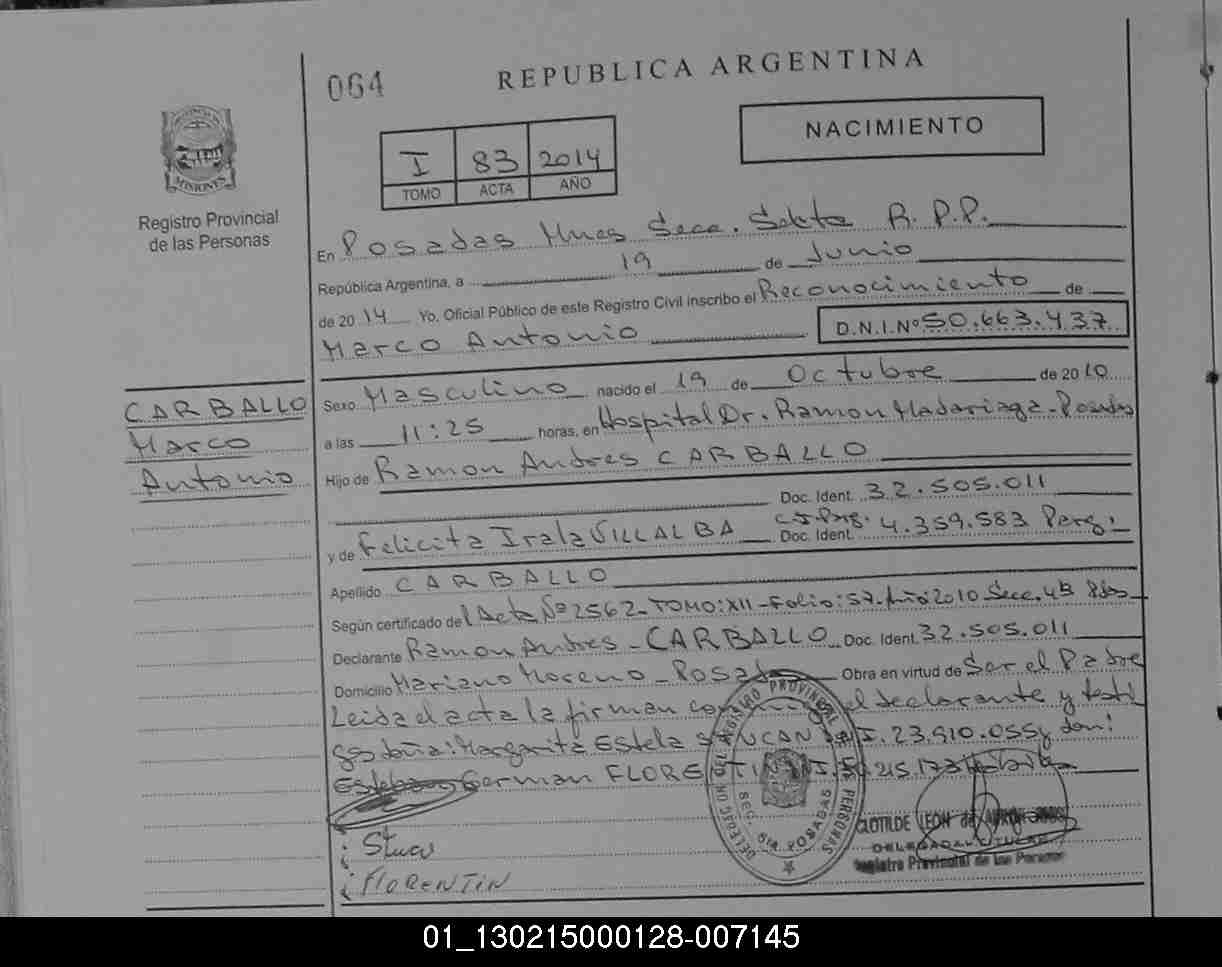 064
REPUBLICA ARGENTINA
NACIMIENTO
I 83 2014
TOMO ACTA AÑO
PROVINCIA DE
MISIONES
Registro Provincial
de las Personas
En Posadas Mnes Secc. Sexta R.P.P.
República Argentina, a 19 de Junio
de 2014 Yo, Oficial Público de este Registro Civil inscribo el Reconocimiento de
Marco Antonio D.N.I.Nº 50.663.437
CARBALLO
Marco
Antonio
Sexo Masculino nacido el 19 de Octubre de 2010
a las 11:25 horas, en Hospital Dr. Ramon Madariaga - Posadas
Hijo de Ramon Andres CARBALLO
Doc. Ident. 32.505.011
y de Felicita Irala VILLALBA Doc. Ident. 4.359.583
Apellido CARBALLO
Según certificado del Acta Nº 2562 - TOMO: XII - Folio: 57 - Año 2010 Secc. 4ta Pdas
Declarante Ramon Andres - CARBALLO Doc. Ident. 32.505.011
Domicilio Mariano Moreno - Posadas Obra en virtud de Ser el Padre
Leida el acta la firman el declarante y testi
gos doña: Margarita Estela I. 23.910.055 y don:
German FLORENTIN
Stuc
FLORENTIN
REGISTRO PROVINCIAL PERSONAS
SEC. 6ta POSADAS
CLOTILDE LEON de
DELEGADA TITULAR
Registro Provincial de las Personas
01_130215000128-007145